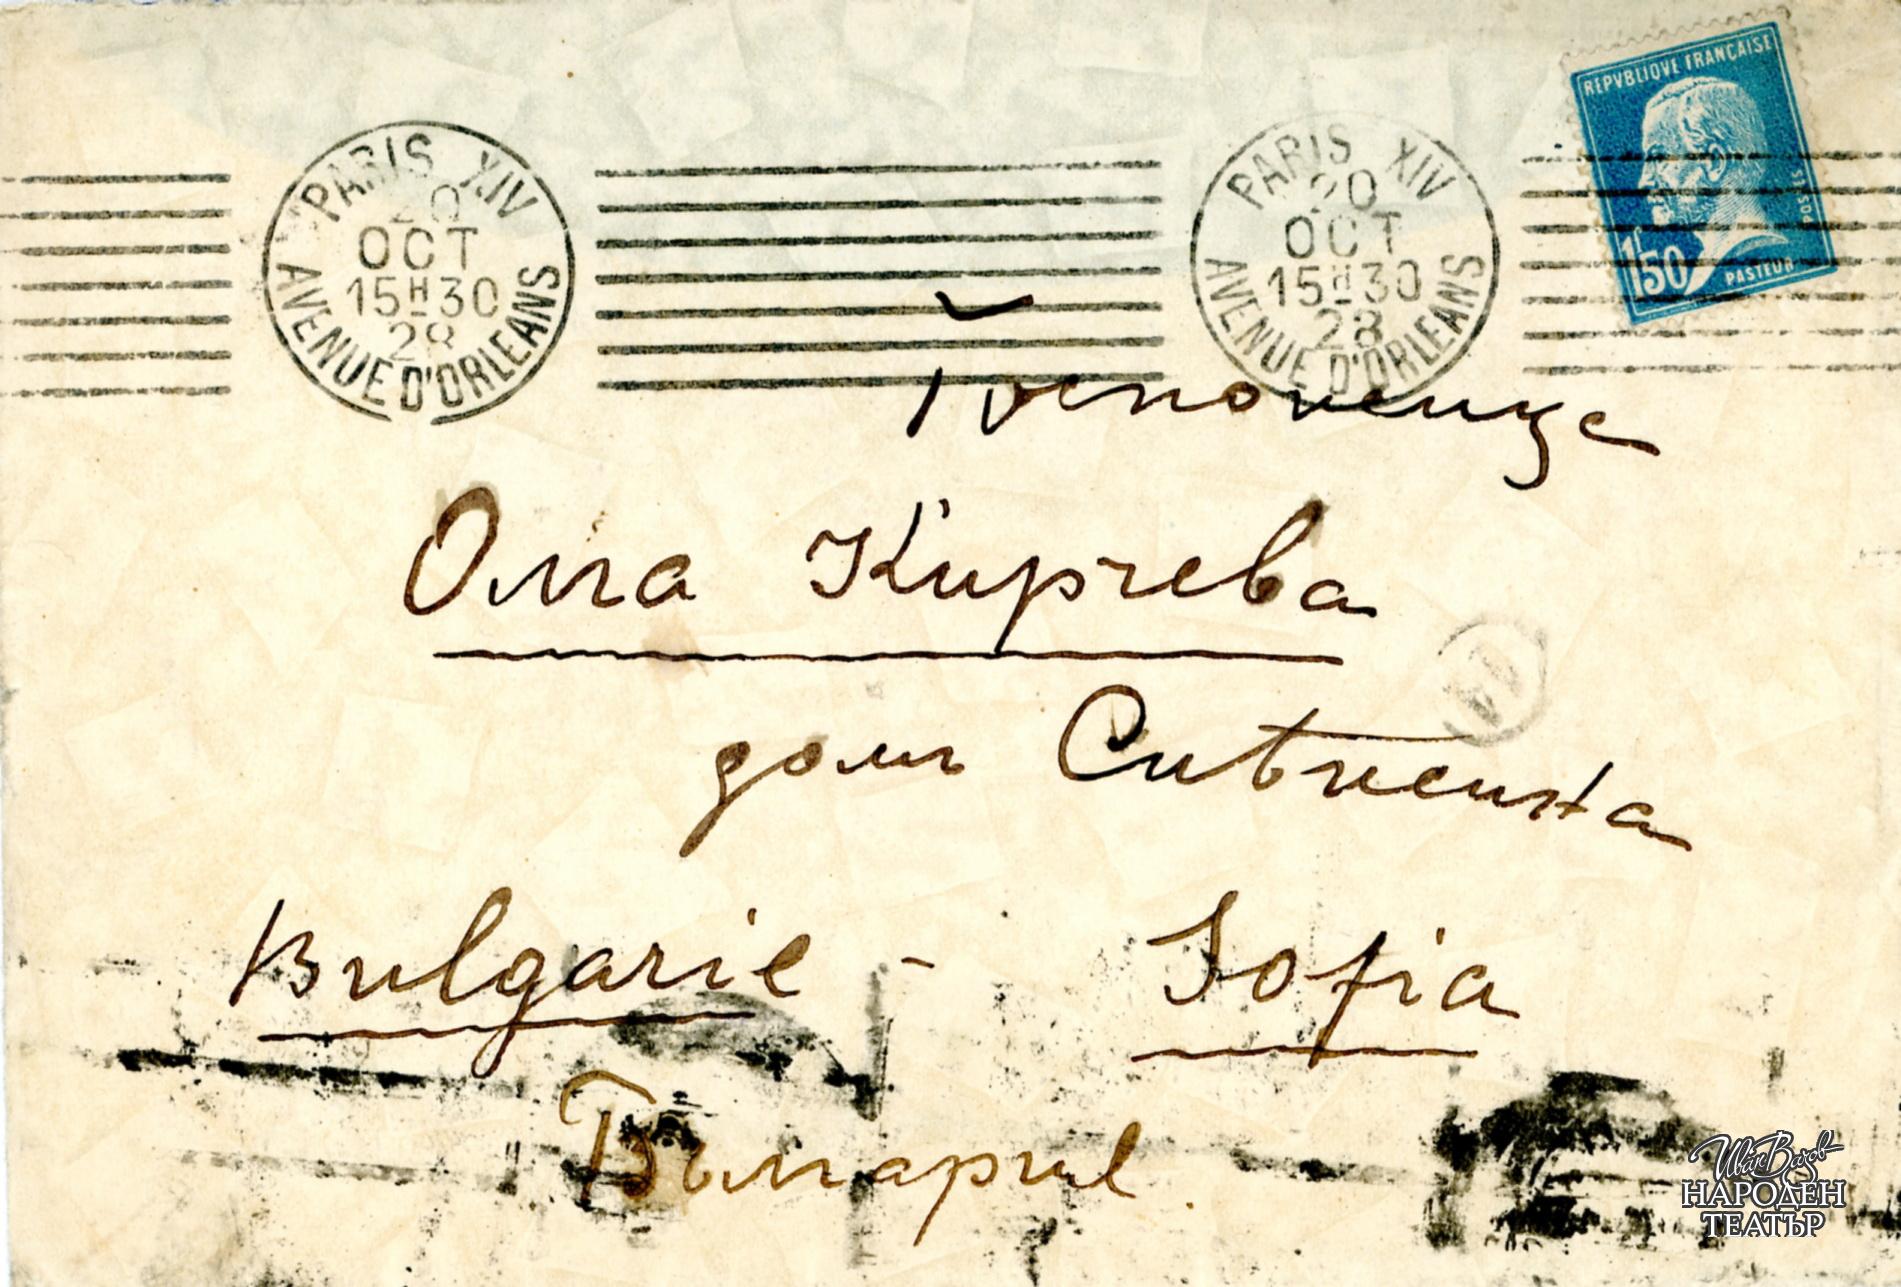 REPVBLIQUE FRANÇAISE
POSTES
1F50
PASTEUR
PARIS XIV
20
OCT
15H30
28
AVENUE D'ORLEANS
PARIS XIV
20
OCT
15H30
28
AVENUE D'ORLEANS
Олга Кирчева
домъ
Bulgarie - Sofia
България.
Иван Вазов
НАРОДЕН
ТЕАТЪР